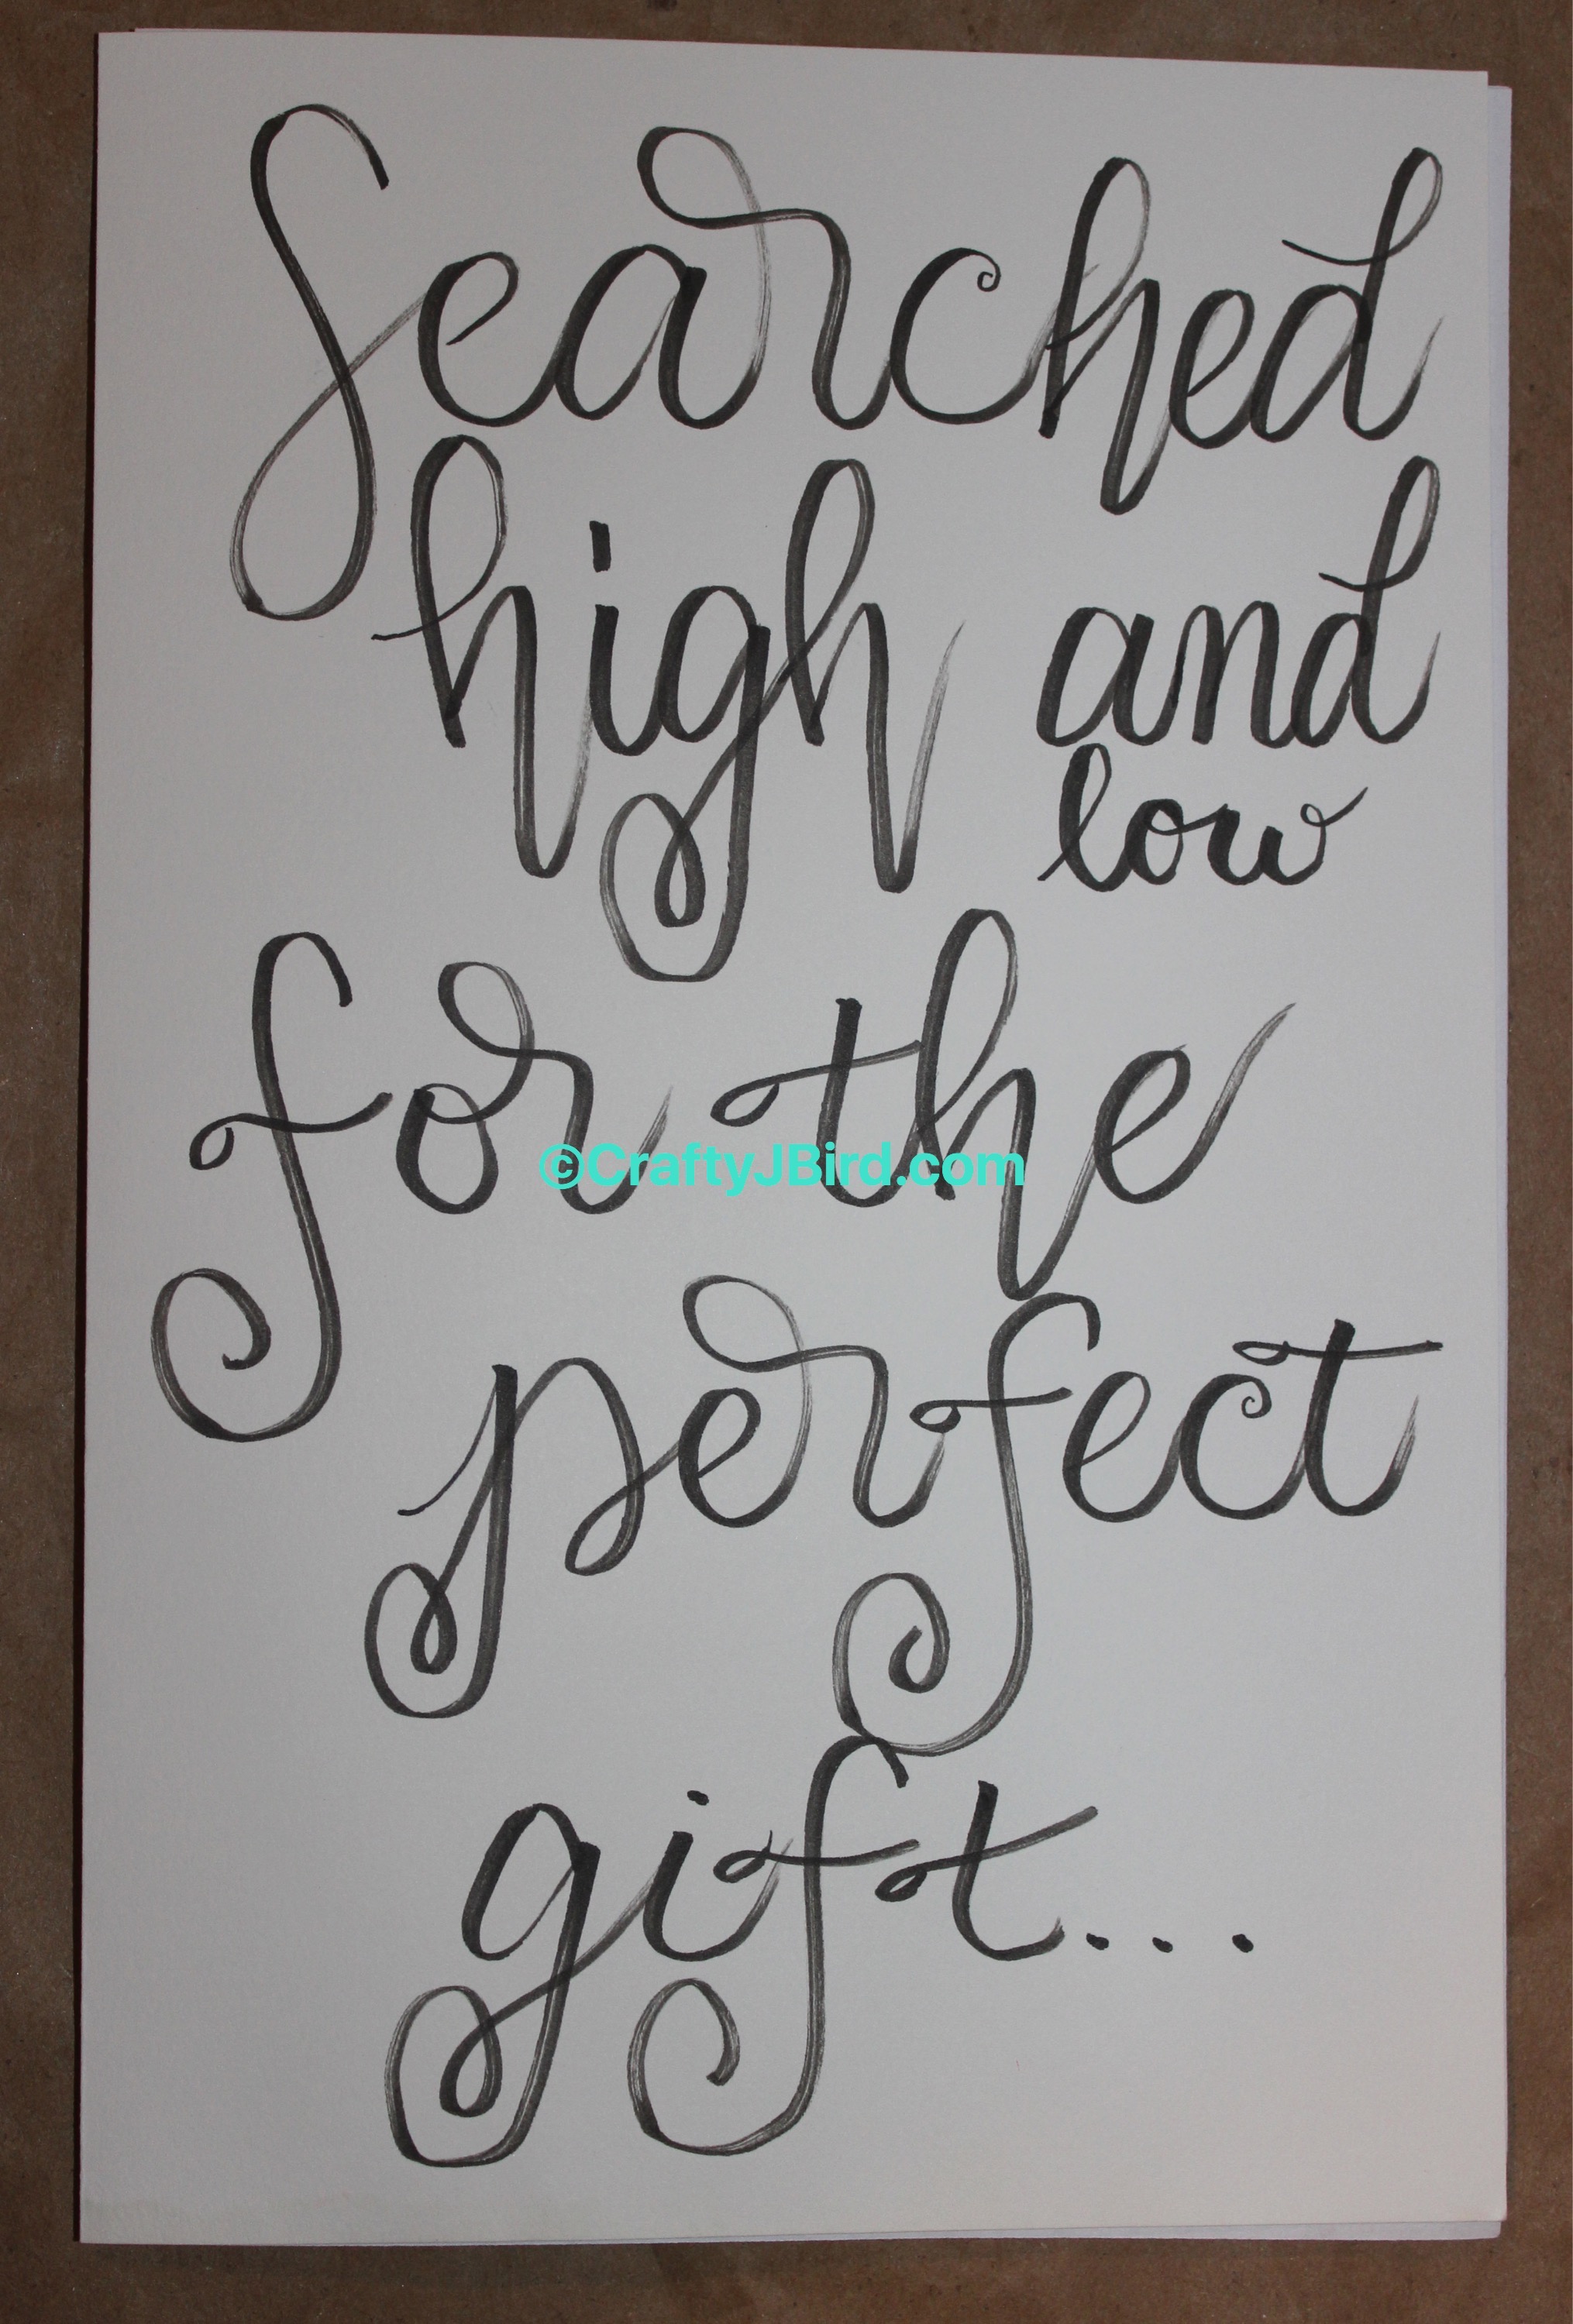 Searched
high and
low
for the
©CraftyJBird.com
perfect
gift...